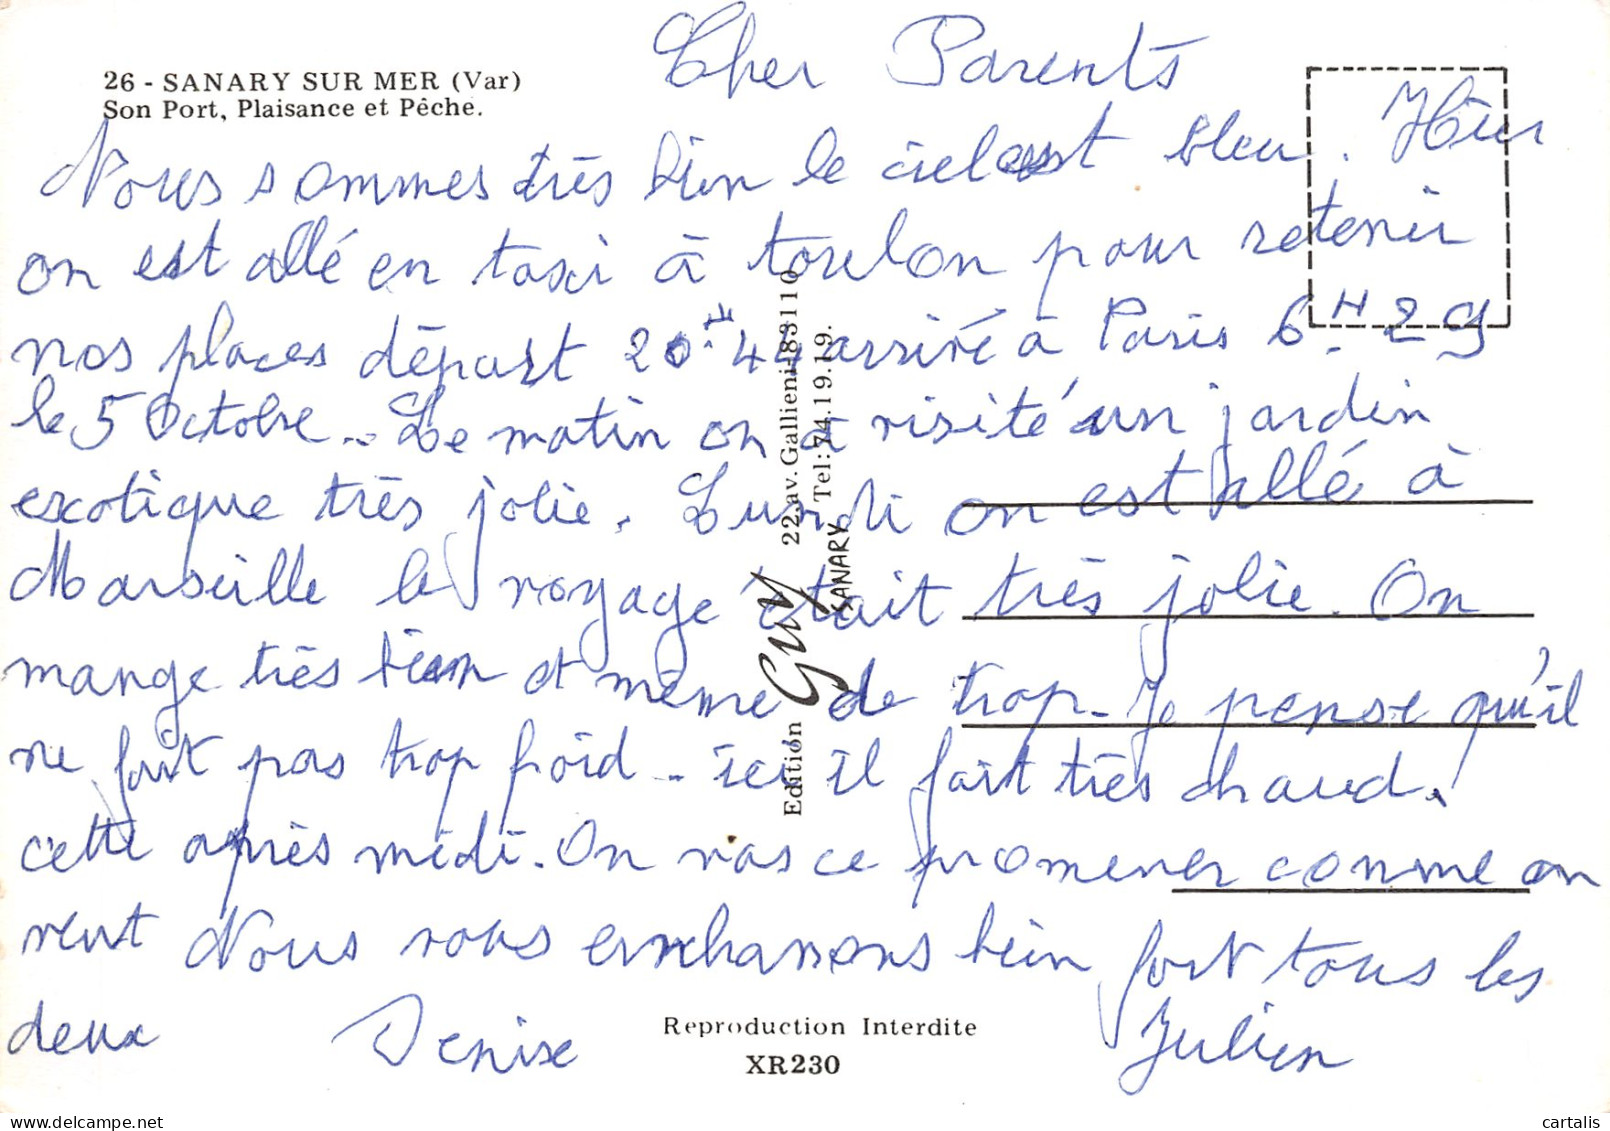 26 - SANARY SUR MER (Var)
Son Port, Plaisance et Pêche.
Cher Parents
Nous sommes très bien le ciel est bleu. Hier
on est allé en taxi à toulon pour retenir
nos places départ 20H44 arrivé à Paris 6H29
le 5 Octobre.. Le matin on a visité un jardin
exotique très jolie. Lundi on est allé à
Marseille le voyage était très jolie. On
mange très bien et même de trop. Je pense qu'il
ne fait pas trop froid.. ici il fait très chaud.
cette après midi. On vas ce promener comme on
veut Nous vous embrassons bien fort tous les
deux Denise Julien
Edition Guy 22,av.Gallieni 83110
SANARY Tel: 74.19.19.
Reproduction Interdite
XR230
cartalis